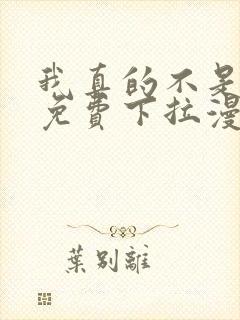 我真的不是
免費下拉漫
葉別離